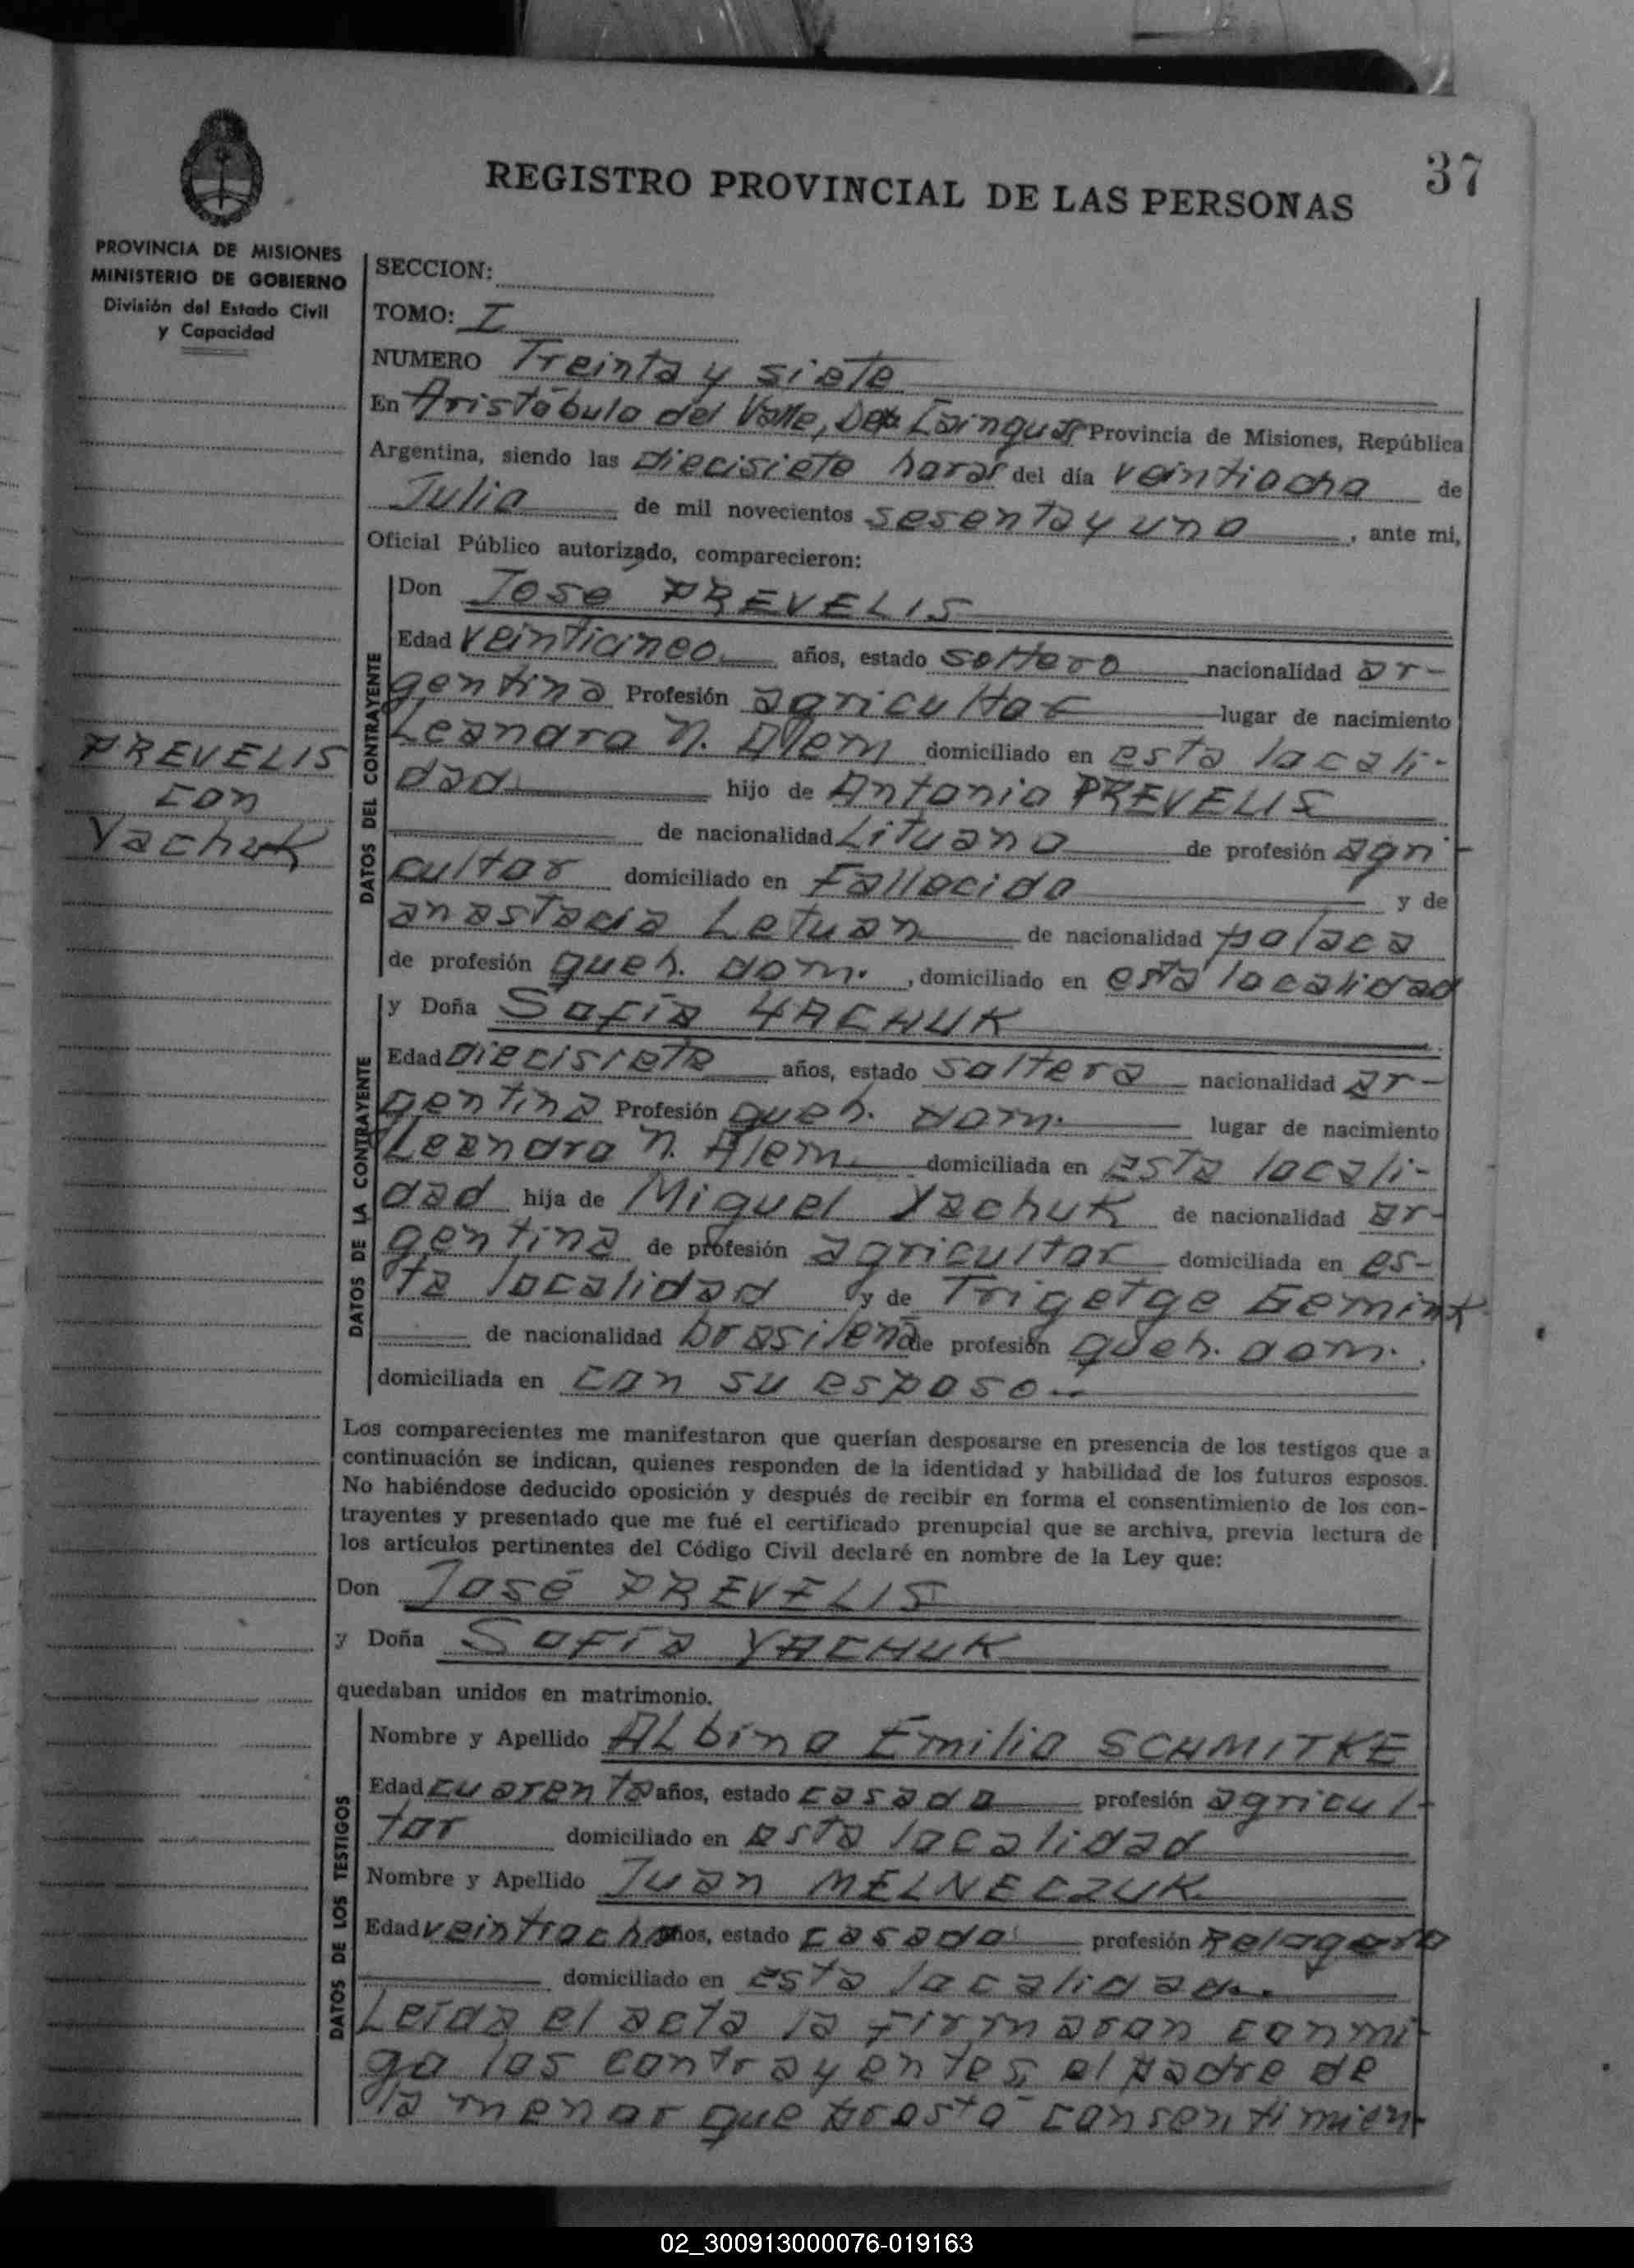 37
REGISTRO PROVINCIAL DE LAS PERSONAS
PROVINCIA DE MISIONES
MINISTERIO DE GOBIERNO
División del Estado Civil
y Capacidad
SECCION:
TOMO: I
NUMERO Treinta y siete
En Aristóbulo del Valle, Dep Cainguas Provincia de Misiones, República
Argentina, siendo las diecisiete horas del día veintiocho de
Julio de mil novecientos sesenta y uno, ante mi,
Oficial Público autorizado, comparecieron:
DATOS DEL CONTRAYENTE
Don José PREVELIS
Edad veinticinco años, estado soltero nacionalidad ar-
gentina Profesión agricultor lugar de nacimiento
Leandro N. Alem domiciliado en esta locali-
dad hijo de Antonio PREVELIS
de nacionalidad Lituano de profesión agri-
cultor domiciliado en Fallecido y de
anastacia Letuan de nacionalidad polaca
de profesión queh. dom., domiciliado en esta localidad
PREVELIS
con
Yachuk
DATOS DE LA CONTRAYENTE
y Doña Sofía YACHUK
Edad diecisiete años, estado soltera nacionalidad ar-
gentina Profesión queh. dom. lugar de nacimiento
Leandro N. Alem domiciliada en esta locali-
dad hija de Miguel Yachuk de nacionalidad ar-
gentina de profesión agricultor domiciliada en es-
ta localidad y de Trigetge
de nacionalidad brasileña de profesión queh. dom.
domiciliada en con su esposo.
Los comparecientes me manifestaron que querían desposarse en presencia de los testigos que a
continuación se indican, quienes responden de la identidad y habilidad de los futuros esposos.
No habiéndose deducido oposición y después de recibir en forma el consentimiento de los con-
trayentes y presentado que me fué el certificado prenupcial que se archiva, previa lectura de
los artículos pertinentes del Código Civil declaré en nombre de la Ley que:
Don José PREVELIS
y Doña Sofía YACHUK
quedaban unidos en matrimonio.
DATOS DE LOS TESTIGOS
Nombre y Apellido ALbino Emilio SCHMITKE
Edad cuarenta años, estado casado profesión agricul-
tor domiciliado en esta localidad
Nombre y Apellido Juan MELNECZUK
Edad veintiocho años, estado casado profesión Relogero
domiciliado en esta localidad.
Leída el acta la firmaron conmi-
go los contrayentes, el padre de
la menor que presta consentimien-
02_300913000076-019163